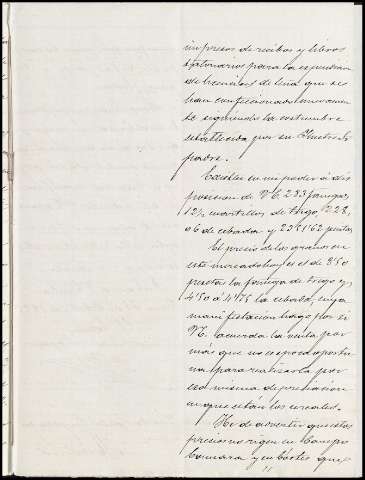 impresos de recibos y libros
talonarios para la expendicion
de licencias de leña que se
han confeccionado nuevamen
te siguiendo la costumbre
establecida por su Ilustre Sr
padre.
Existen en mi poder a dis
posicion de V.E. 283 fanegas
12½ cuartillos de trigo, 228,
06 de cebada y 2251'62 pesetas
El precio de los granos en
este mercado hoy es el de 8'50
pesetas la fanega de trigo y
4'50 á 4'75 la cebada, cuya
manifestacion hago por si
V.E. acuerda la venta por
más que no es epoca oportu
na para realizarla por
la misma depreciacion
en que están los cereales.
He de advertir que estos
precios no rigen en Campo
Cámara y en Cortes que